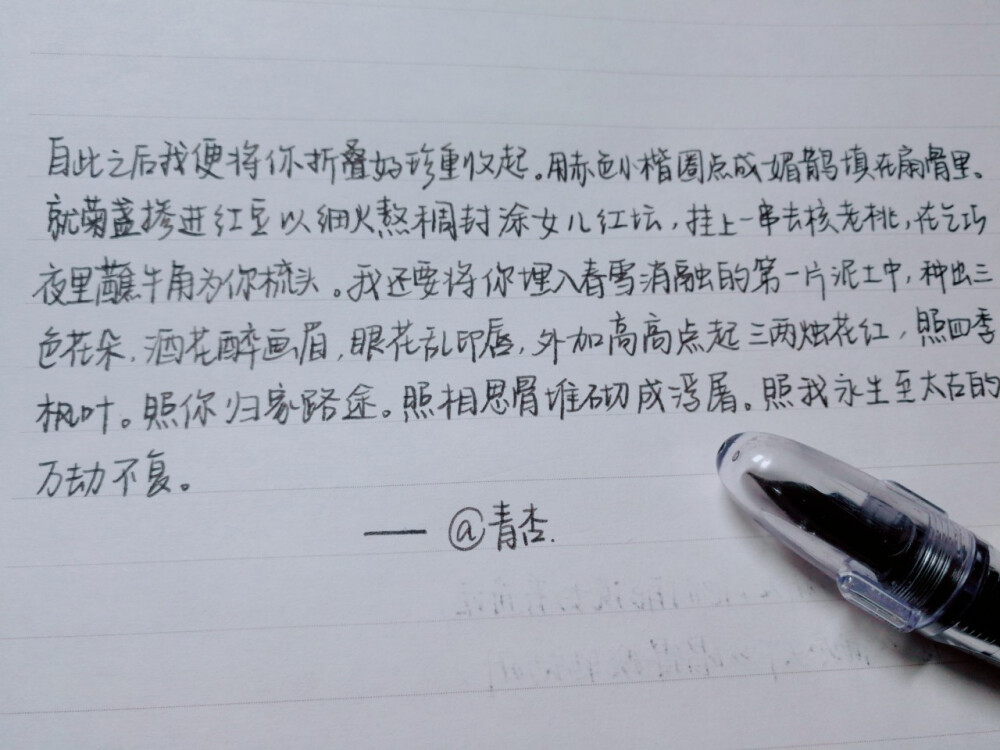 自此之后我便将你折叠好珍重收起。用赤色小楷圈点成媚鹊填在扇骨里、
就菊盏掺进红豆以细火熬稠封涂女儿红坛，挂上一串去核老桃，在乞巧
夜里蘸牛角为你梳头。我还要将你埋入春雪消融的第一片泥土中，种出三
色花朵，酒花醉画眉，眼花乱印唇，外加高高点起三两烛花红，照四季
枫叶。照你归家路途。照相思骨堆砌成浮屠。照我永生至太古的
万劫不复。
—— @青杏.